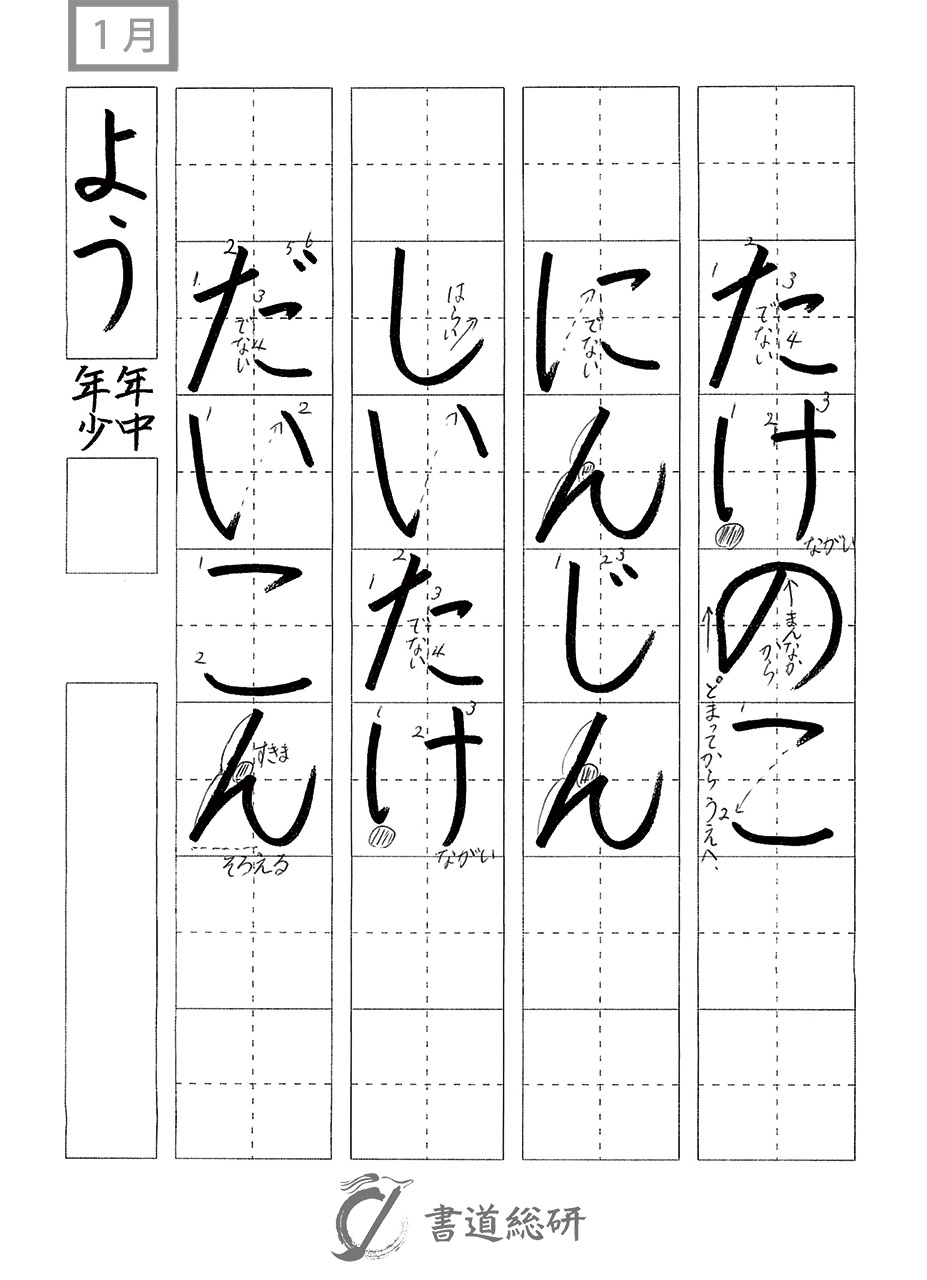 1月
たけのこ
1
2
3
でない
4
1
2
3
ながい
まんなか
から
とまってからうえへ
1
2
にんじん
でない
1
2
3
しいたけ
はらい
1
2
3
でない
4
1
2
3
ながい
だいこん
1
2
3
でない
4
5
6
1
2
1
2
すきま
そろえる
よう
年中
年少
書道総研